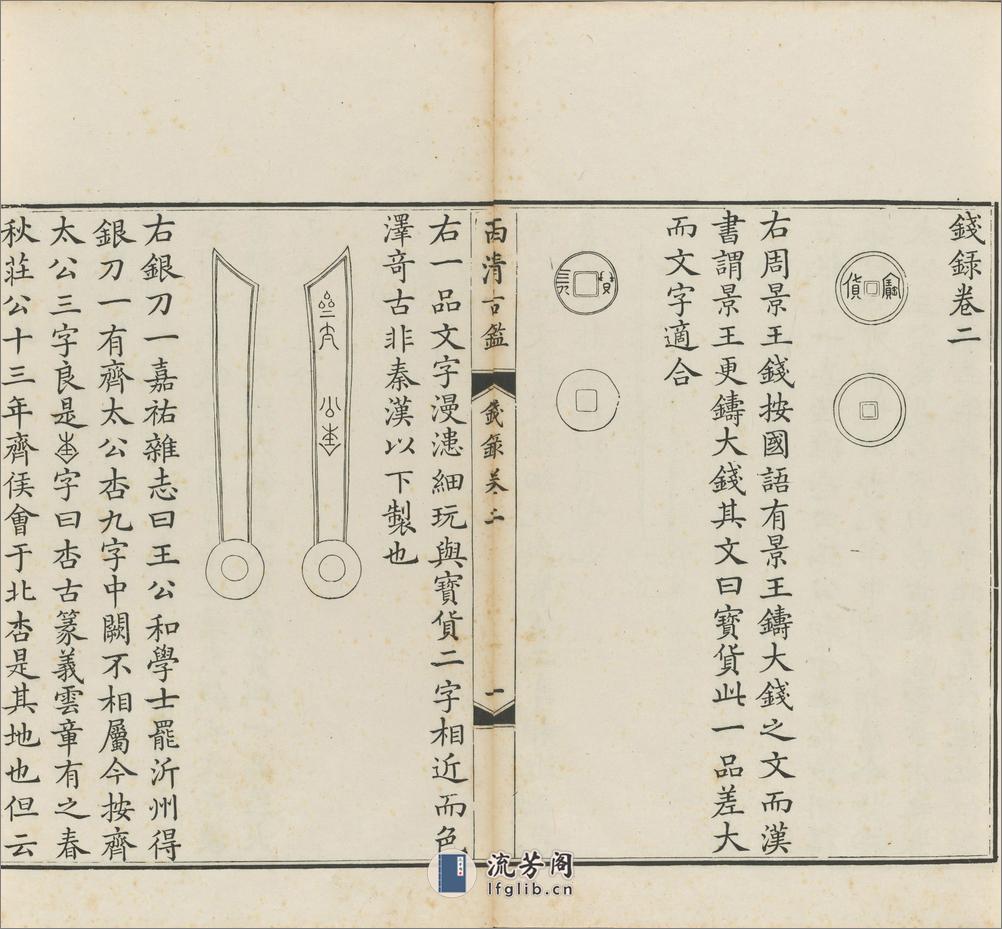 錢録卷二
寶貨
右周景王錢按國語有景王鑄大錢之文而漢
書謂景王更鑄大錢其文曰寶貨此一品差大
而文字適合
西清古鑑
錢錄卷二
一
右一品文字漫漶細玩與寶貨二字相近而色
澤奇古非秦漢以下製也
右銀刀一嘉祐雜志曰王公和學士罷沂州得
銀刀一有齊太公杏九字中闕不相屬今按齊
太公三字良是字曰杏古篆義雲章有之春
秋莊公十三年齊侯會于北杏是其地也但云
流芳阁
lfglib.cn